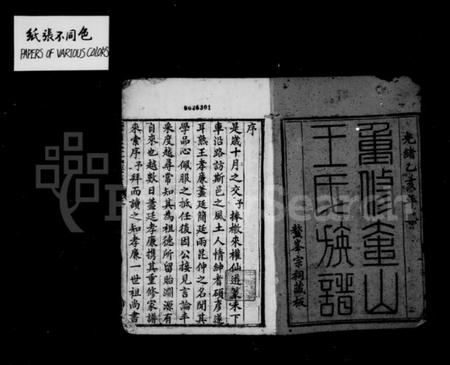 紙張不同色
PAPERS OF VARIOUS COLORS
光緒乙亥年
重修金山
王氏族譜
鰲峯宗祠藏板
序
是歲十月之交予捧檄來權仙遊篆未下
車沿路訪斯邑之風土人情紳者碩彥遂
耳熟王孝廉藎廷簡廷兩昆仲之名聞其
學品心佩服之抵任後因公接見言論丰
采度越尋常知其為祖德所留貽淵源有
自來也越數日藎廷孝廉攜其重修家譜
來索序予拜而讀之知孝廉一世祖尚書